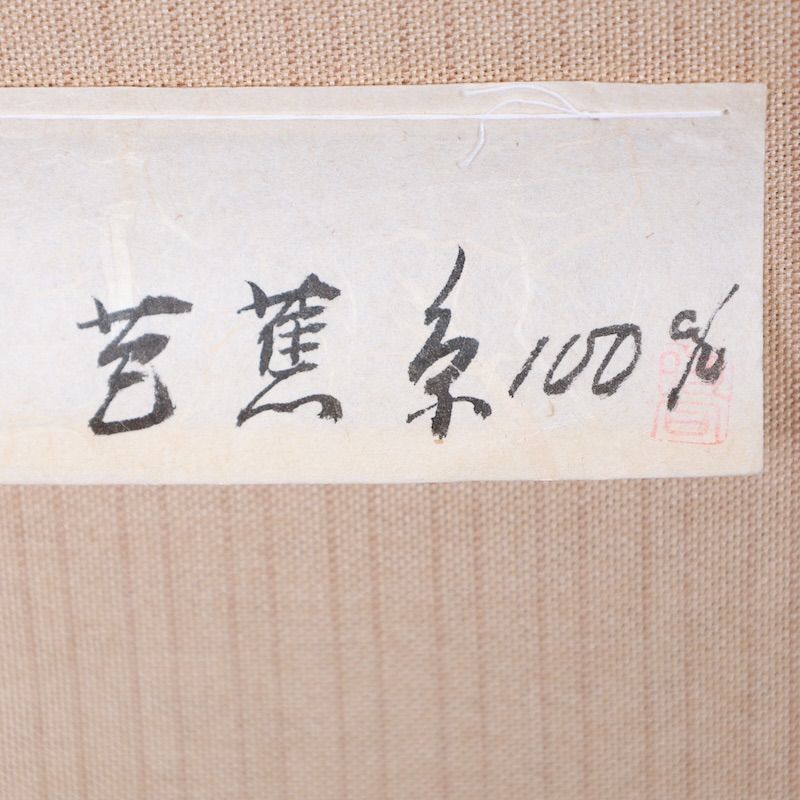 芭蕉糸100%